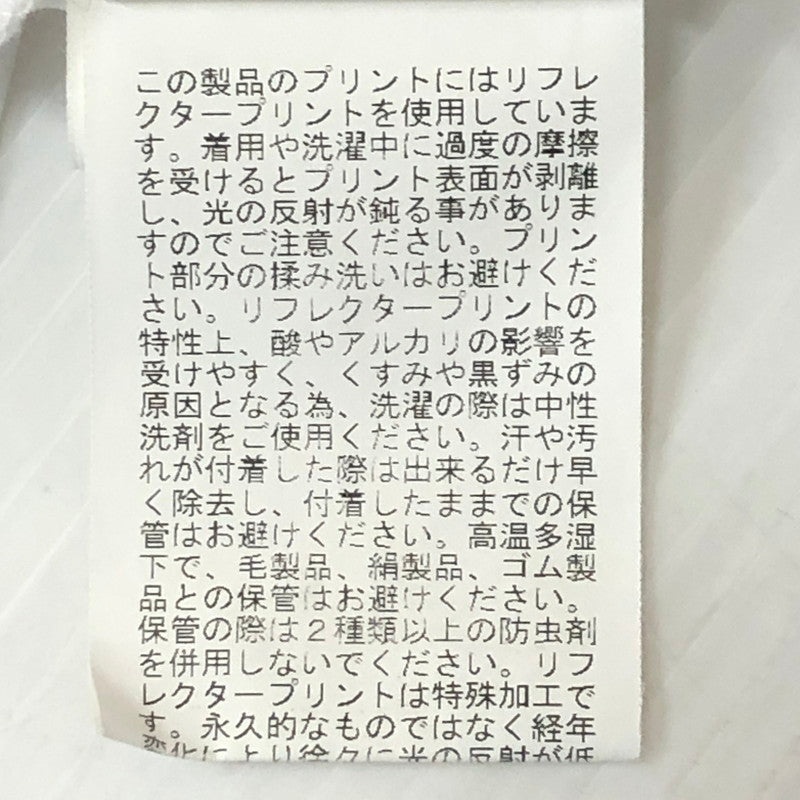 この製品のプリントにはリフレ
クタープリントを使用していま
す。着用や洗濯中に過度の摩擦
を受けるとプリント表面が剥離
し、光の反射が鈍る事がありま
すのでご注意ください。プリン
ト部分の揉み洗いはお避けくだ
さい。リフレクタープリントの
特性上、酸やアルカリの影響を
受けやすく、くすみや黒ずみの
原因となる為、洗濯の際は中性
洗剤をご使用ください。汗や汚
れが付着した際は出来るだけ早
く除去し、付着したままでの保
管はお避けください。高温多湿
下で、毛製品、絹製品、ゴム製
品との保管はお避けください。
保管の際は2種類以上の防虫剤
を併用しないでください。リフ
レクタープリントは特殊加工で
す。永久的なものではなく経年
変化により徐々に光の反射が低